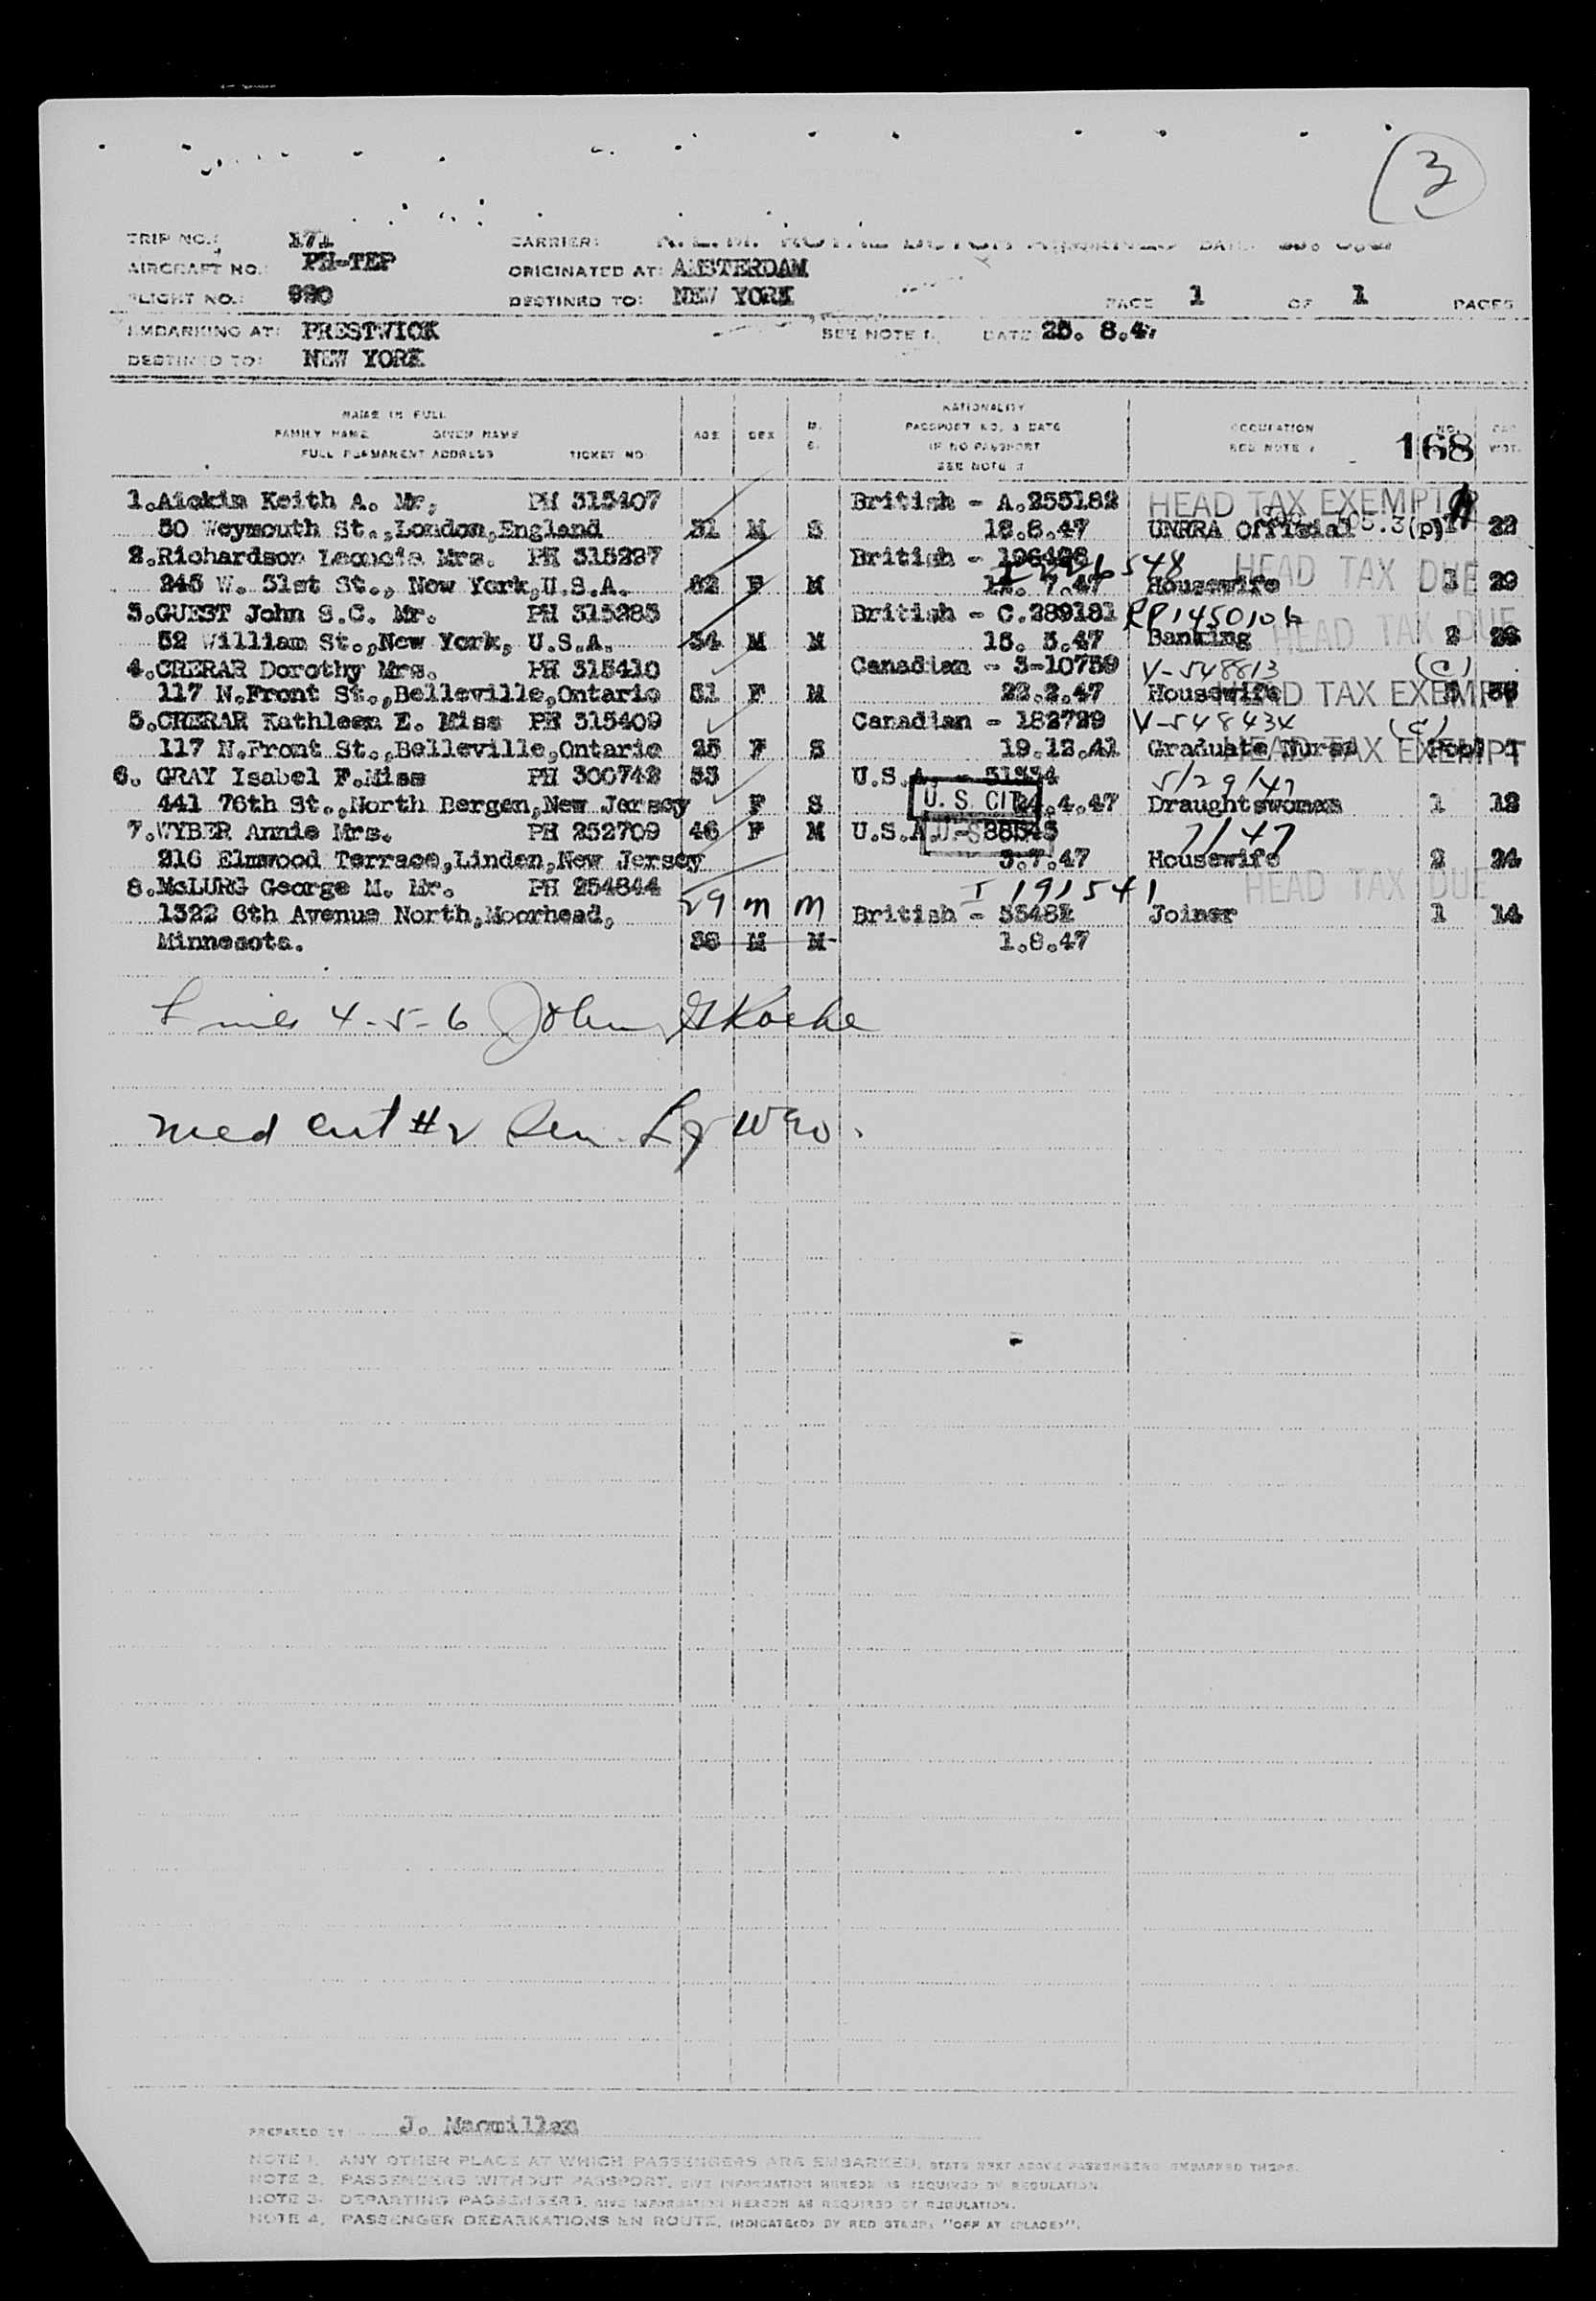 3
TRIP NO.: 171 CARRIER: K.L.M. ROYAL DUTCH AIRLINES DATE:
AIRCRAFT NO.: PH-TEP ORIGINATED AT: AMSTERDAM
FLIGHT NO.: 990 DESTINED TO: NEW YORK PAGE 1 OF 1 PAGES
EMBARKING AT: PRESTWICK SEE NOTE 1. DATE 25. 8.47
DESTINED TO: NEW YORK
NAME IN FULL NATIONALITY
FAMILY NAME GIVEN NAME AGE SEX M. PASSPORT NO. & DATE OCCUPATION NO.
FULL PERMANENT ADDRESS TICKET NO. S. IF NO PASSPORT SEE NOTE 168 WGT.
SEE NOTE
1.Aickin Keith A. Mr. PH 315407 British - A.255182 HEAD TAX EXEMPT
30 Weymouth St.,London,England 31 M S 18.8.47 UNRRA Official 105.3(p) 22
2.Richardson Mrs. PH 315297 British - HEAD TAX DUE
245 W. 51st St., New York,U.S.A. 62 F M 7.47 Housewife 3 29
3.GUEST John S.C. Mr. PH 315285 British - C.289181 RP1450106
52 William St.,New York, U.S.A. 34 M M 15. 5.47 Banking HEAD TAX DUE 2 26
4.CRERAR Dorothy Mrs. PH 315410 Canadian - 3-10759 V-548813 (C)
117 N.Front St.,Belleville,Ontario 51 F M 22.2.47 Housewife HEAD TAX EXEMPT
5.CRERAR Kathleen E. Miss PH 315409 Canadian - 182729 V-548434 (C)
117 N.Front St.,Belleville,Ontario 25 F S 19.12.41 Graduate Nurse HEAD TAX EXEMPT
6. GRAY Isabel F.Miss PH 300742 33 U.S.A. - 51334 5/29/47
441 76th St.,North Bergen,New Jersey F S U. S. CIT 24.4.47 Draughtswoman 1 12
7.WYBER Annie Mrs. PH 252709 46 F M U.S.A. U.S 88545 7/47
216 Elmwood Terrace,Linden,New Jersey 3.7.47 Housewife 2 24
8.McLURG George M. Mr. PH 254844 I 191541 HEAD TAX DUE
1322 6th Avenue North,Moorhead, 29 M M British - Joiner 1 14
Minnesota. 38 M M 1.8.47
Lines 4-5-6 John
med cert #2
PREPARED BY J. Macmillan
NOTE 1. ANY OTHER PLACE AT WHICH PASSENGERS ARE EMBARKED, STATE NEXT ABOVE PASSENGERS EMBARKED THERE.
NOTE 2. PASSENGERS WITHOUT PASSPORT, GIVE INFORMATION HEREON AS REQUIRED BY REGULATION.
NOTE 3. DEPARTING PASSENGERS, GIVE INFORMATION HEREON AS REQUIRED BY REGULATION.
NOTE 4. PASSENGER DEBARKATIONS EN ROUTE, INDICATE(D) BY RED STAMP, "OFF AT (PLACE)".